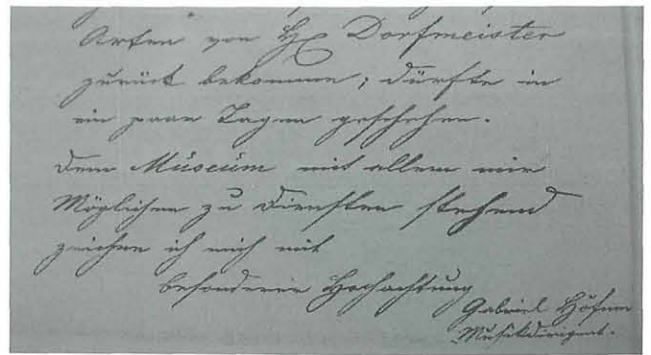 Arten von H. Dorfmeister
zurück bekomme; dürfte in
ein paar Tagen geschehen.
Dem Museum mit allem mir
Möglichen zu Diensten stehend
zeichne ich mich mit
besonderer Hochachtung
Gabriel Höfner
Musikdirigent.